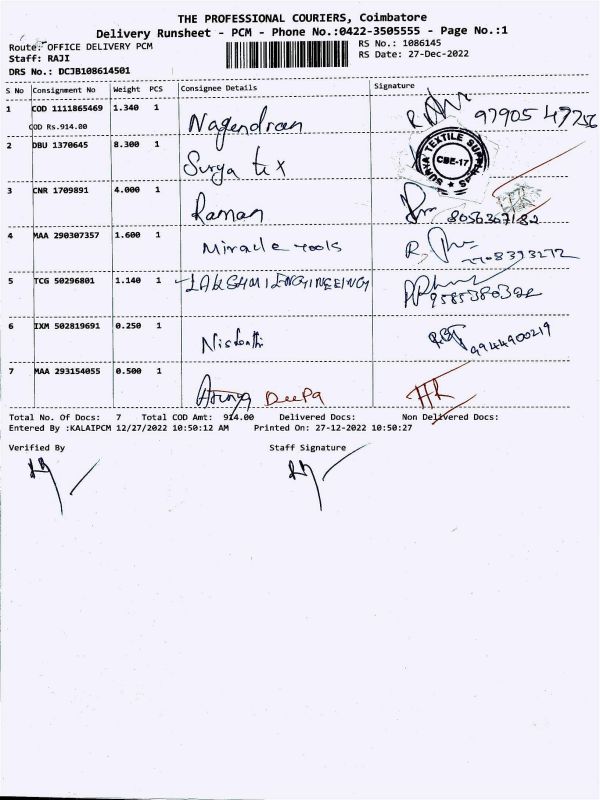 THE PROFESSIONAL COURIERS, Coimbatore
Delivery Runsheet - PCM - Phone No.:0422-3505555 - Page No.:1
Route: OFFICE DELIVERY PCM
RS No.: 1086145
Staff: RAJI
RS Date: 27-Dec-2022
DRS No.: DCJB108614501
S No Consignment No Weight PCS Consignee Details Signature
1 COD 1111865469 1.340 1 Nagendran 97905 49256
COD Rs.914.00
2 DBU 1370645 8.300 1 Surya tex SURYA TEXTILE SUPP CBE-17
3 CNR 1709891 4.000 1 Raman 8056367182
4 MAA 290307357 1.600 1 Miracle tools 7708393272
5 TCG 50296801 1.140 1 LAKSHMI ENGINEEING
6 IXM 502819691 0.250 1 Nishanthi 9944900219
7 MAA 293154055 0.500 1 Aruna DeePa
Total No. Of Docs: 7 Total COD Amt: 914.00 Delivered Docs: Non Delivered Docs:
Entered By :KALAIPCM 12/27/2022 10:50:12 AM Printed On: 27-12-2022 10:50:27
Verified By Staff Signature